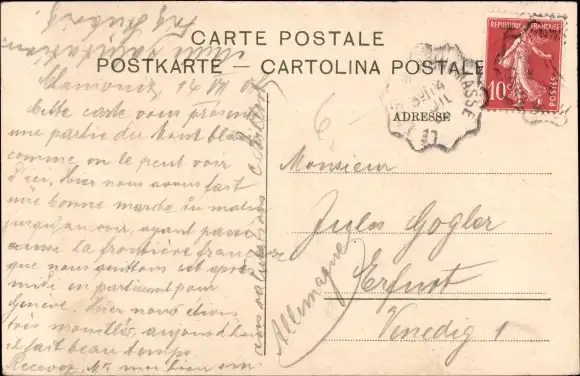 CARTE POSTALE
POSTKARTE – CARTOLINA POSTALE
ADRESSE
RÉPUBLIQUE FRANÇAISE
10c
POSTES
Chamonix, 14 VII
Cette carte vous présente
une partie du Mont blanc
comme on le peut voir
d'ici. Hier nous avons fait
une bonne marche du matin
jusqu'au soir, ayant passé
aussi la frontière française
que nous quittons cet après
midi en partant pour
Genève. Hier nous étions
très mouillés, aujourd'hui
il fait beau temps
Recevez, Mr mes bien
Monsieur
Jules Gogler
Erfurt
Venedig 1
Allemagne